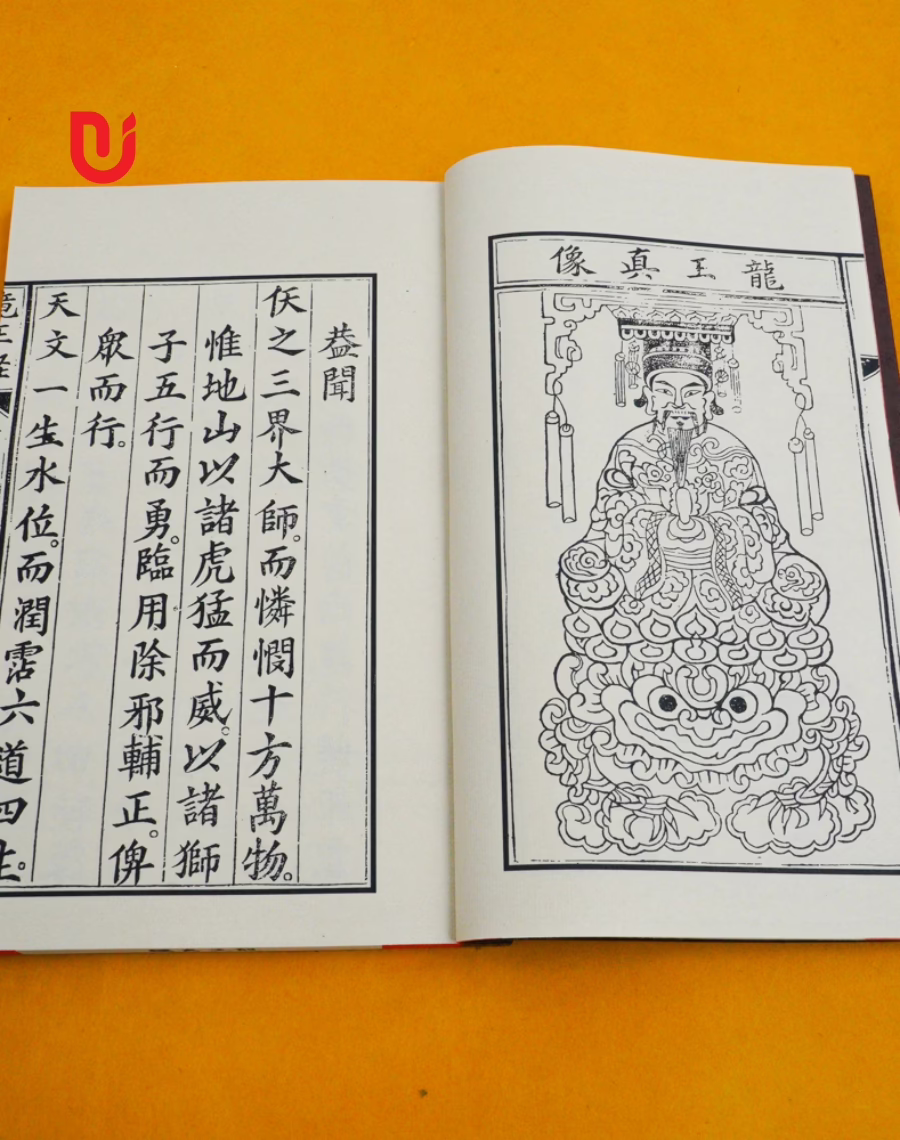 龍王真像
葢聞
仸之三界大師。而憐憫十方萬物。
惟地山以諸虎猛而威。以諸獅
子五行而勇。臨用除邪輔正。俾
眾而行。
天文一生水位。而潤霑六道四生。
竜王経